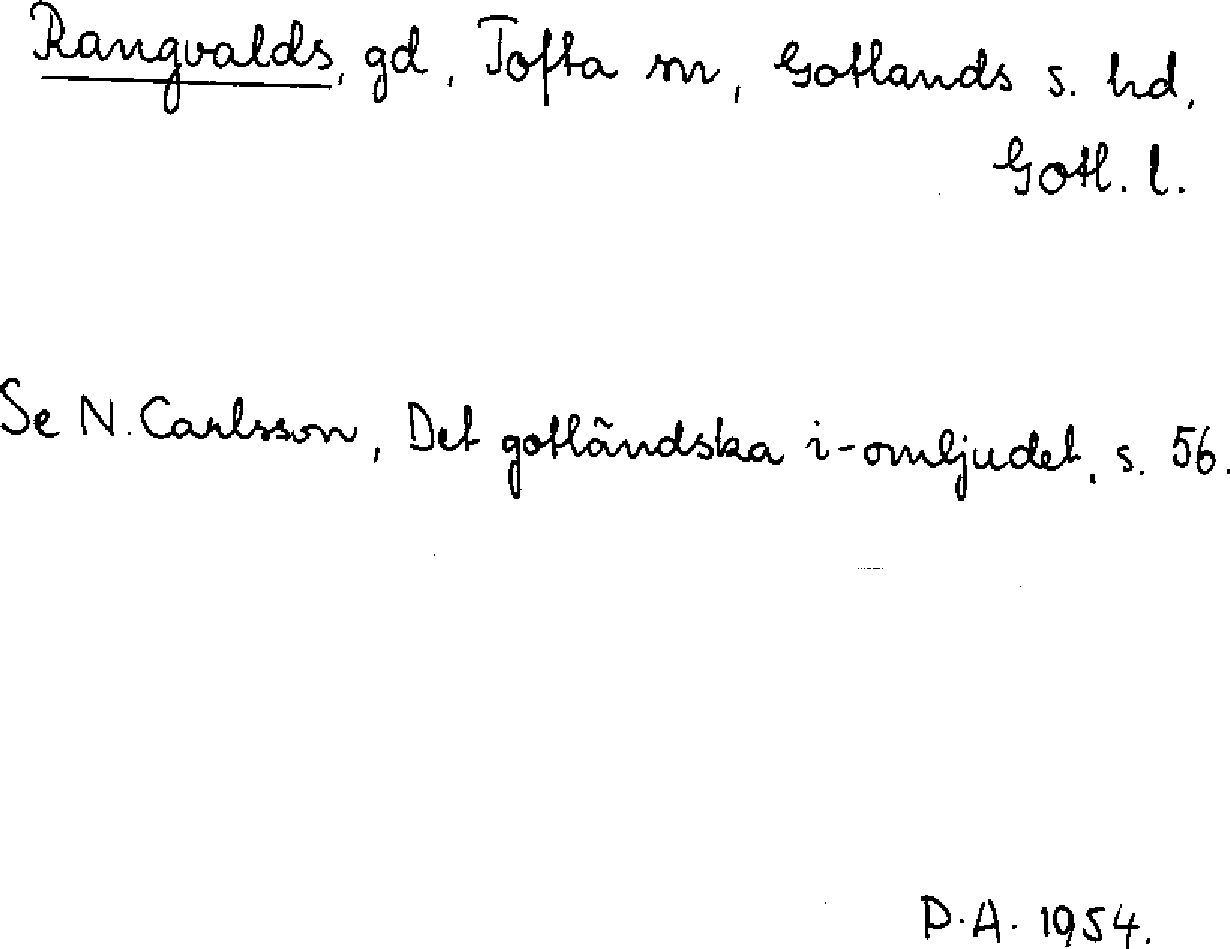 Rangvalds, gd, Tofta sn, Gotlands s. hd,
Gotl. l.
Se N. Carlsson, Det gotländska i-omljudet, s. 56.
D.A. 1954.